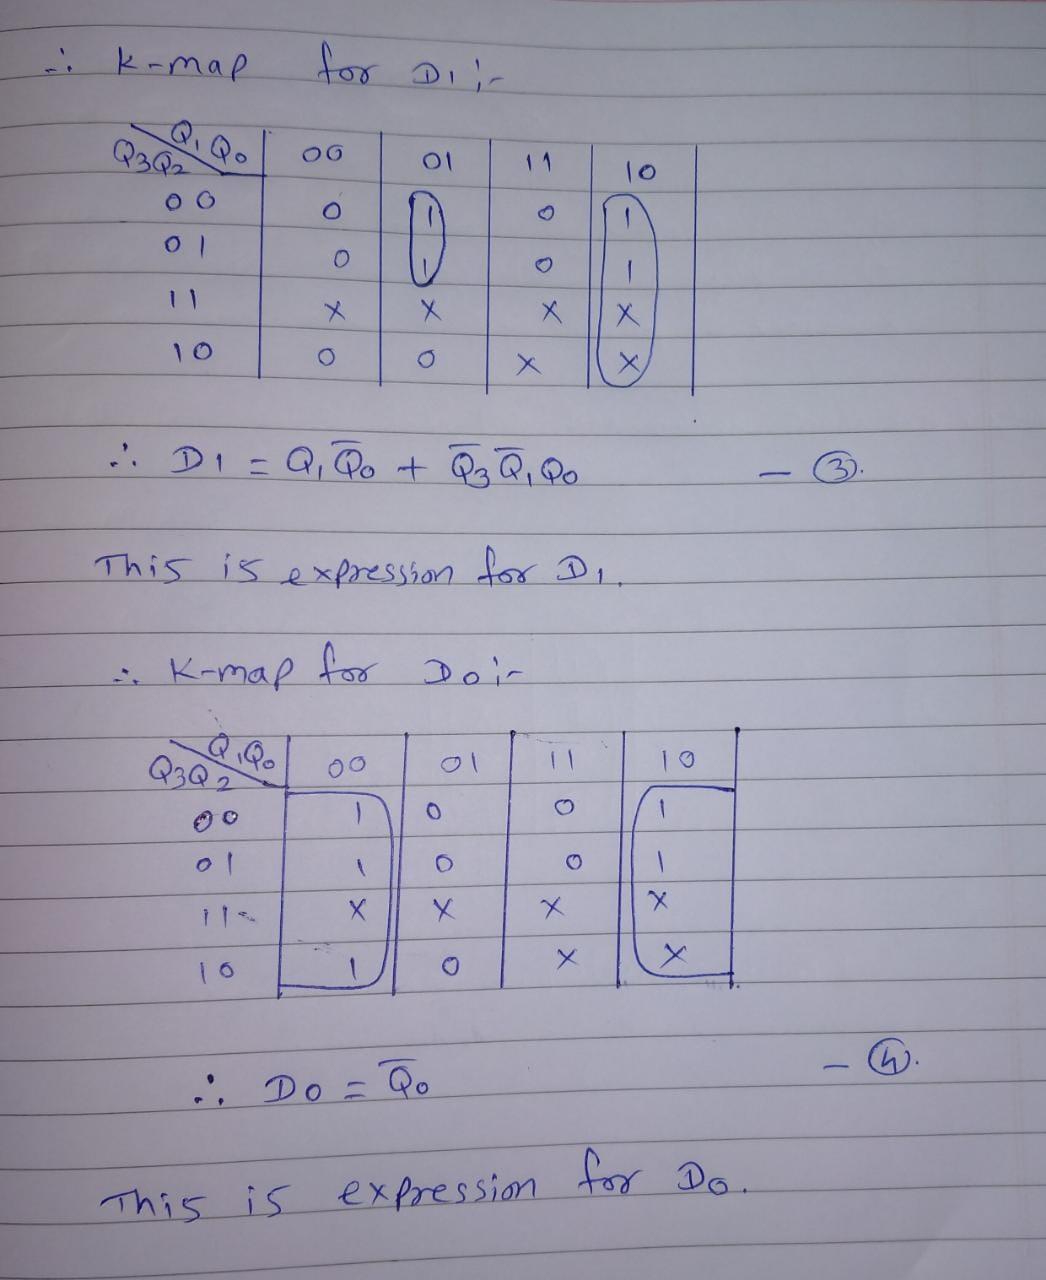 ∴ K-map for D1 :-
Q1Q0
Q3Q2 00 01 11 10
00 0 1 0 1
01 0 1 0 1
11 X X X X
10 0 0 X X
∴ D1 = Q1Q̅0 + Q̅3Q̅1Q0 - ③.
This is expression for D1.
∴ K-map for D0 :-
Q1Q0
Q3Q2 00 01 11 10
00 1 0 0 1
01 1 0 0 1
11 X X X X
10 1 0 X X
∴ D0 = Q̅0 - ④.
This is expression for D0.